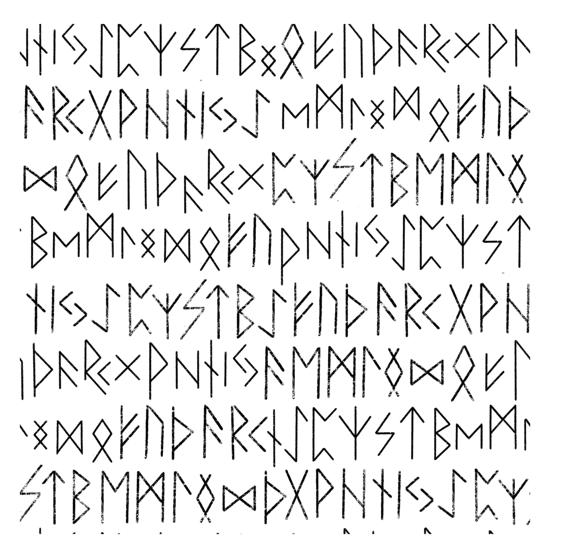 ᚾᛁᛃᛇᛈᛉᛊᛏᛒᛜᛟᚠᚢᚦᚨᚱᚲᚷᚹ
ᚨᚱᚲᚷᚹᚺᚾᛁᛃᛇᛖᛗᛚᛜᛞᛟᚠᚢᚦ
ᛞᛟᚠᚢᚦᚨᚱᚲᚷᛈᛉᛊᛏᛒᛖᛗᛚᛜ
ᛒᛖᛗᛚᛜᛞᛟᚠᚢᚹᚺᚾᛁᛃᛇᛈᛉᛊᛏ
ᚾᛁᛃᛇᛈᛉᛊᛏᛒᛇᚠᚢᚦᚨᚱᚲᚷᚹᚺ
ᚦᚨᚱᚲᚷᚹᚺᚾᛁᛃᚨᛖᛗᛚᛜᛞᛟᚠ
ᛜᛞᛟᚠᚢᚦᚨᚱᚲᚾᛇᛈᛉᛊᛏᛒᛖᛗ
ᛊᛏᛒᛖᛗᛚᛜᛞᚦᚷᚹᚺᚾᛁᛃᛇᛈᛉ